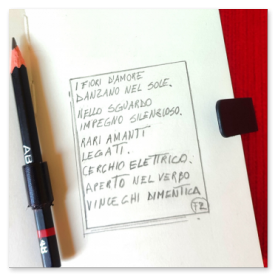 I FIORI D'AMORE
DANZANO NEL SOLE.
NELLO SGUARDO
IMPEGNO SILENZIOSO.
RARI AMANTI
LEGATI.
CERCHIO ELETTRICO.
APERTO NEL VERBO
VINCE CHI DIMENTICA
FZ
AB